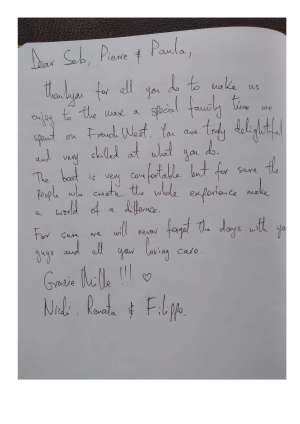 Dear Seb, Pierre & Paula,
thankyou for all you do to make us
enjoy to the max a special family time we
spent on French West. You are truly delightful
and very skilled at what you do.
The boat is very comfortable but for sure the
people who create the whole experience make
a world of a difference.
For sure we will never forget the days with you
guys and all your loving care.
Grazie Mille !!! ♡
Nicki, Renata & Filippo.